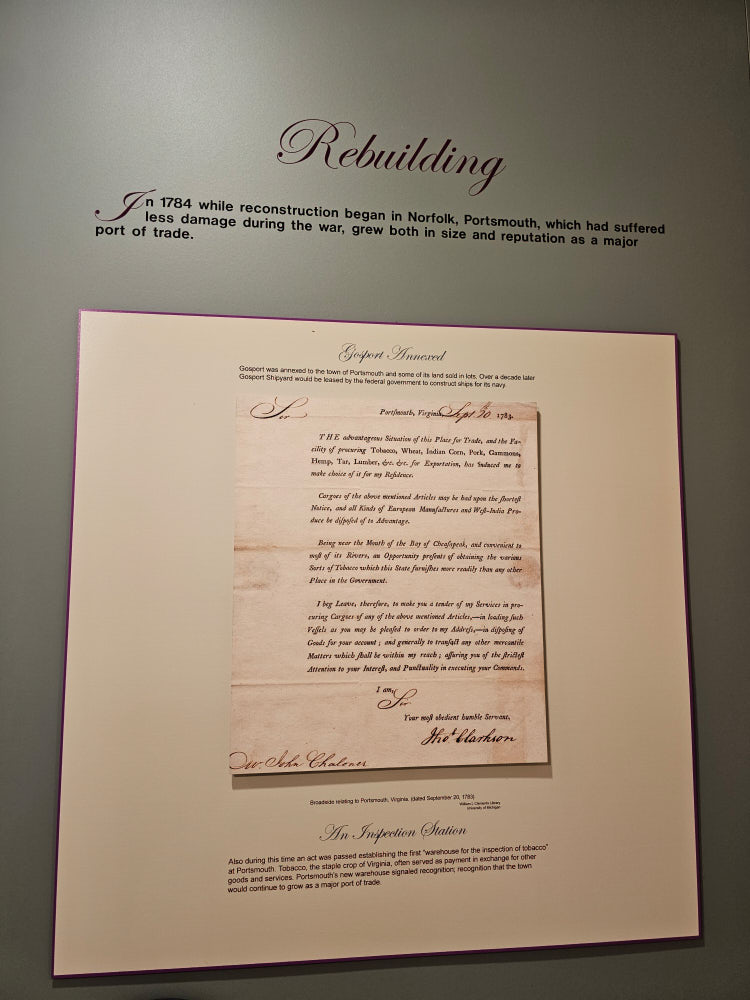 Rebuilding
In 1784 while reconstruction began in Norfolk, Portsmouth, which had suffered
less damage during the war, grew both in size and reputation as a major
port of trade.
Gosport Annexed
Gosport was annexed to the town of Portsmouth and some of its land sold in lots. Over a decade later
Gosport Shipyard would be leased by the federal government to construct ships for its navy.
Sir
Portſmouth, Virginia, Sept 20 1783.
THE advantageous Situation of this Place for Trade, and the Fa-
cility of procuring Tobacco, Wheat, Indian Corn, Pork, Gammons,
Hemp, Tar, Lumber, &c. &c. for Exportation, has induced me to
make choice of it for my Reſidence.
Cargoes of the above mentioned Articles may be had upon the ſhorteſt
Notice, and all Kinds of European Manufactures and Weſt-India Pro-
duce be diſpoſed of to Advantage.
Being near the Mouth of the Bay of Cheaſapeak, and convenient to
moſt of its Rivers, an Opportunity preſents of obtaining the various
Sorts of Tobacco which this State furniſhes more readily than any other
Place in the Government.
I beg Leave, therefore, to make you a tender of my Services in pro-
curing Cargoes of any of the above mentioned Articles,—in loading ſuch
Veſſels as you may be pleaſed to order to my Addreſs,—in diſpoſing of
Goods for your account; and generally to tranſact any other mercantile
Matters which ſhall be within my reach; aſſuring you of the ſtricteſt
Attention to your Intereſt, and Punctuality in executing your Commands.
I am,
Sir
Your moſt obedient humble Servant,
Thos. Clarkson
Mr. John Chaloner
Broadside relating to Portsmouth, Virginia, (dated September 20, 1783)
William L Clements Library
University of Michigan
An Inspection Station
Also during this time an act was passed establishing the first "warehouse for the inspection of tobacco"
at Portsmouth. Tobacco, the staple crop of Virginia, often served as payment in exchange for other
goods and services. Portsmouth's new warehouse signaled recognition; recognition that the town
would continue to grow as a major port of trade.